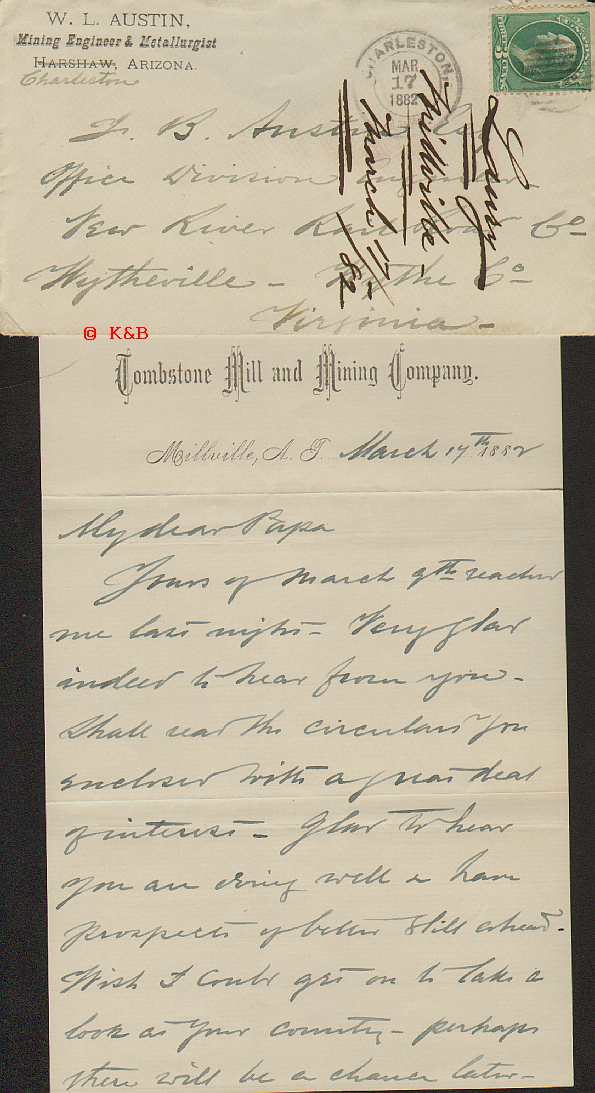 W. L. AUSTIN,
Mining Engineer & Metallurgist
HARSHAW, ARIZONA.
Charleston
CHARLESTON
MAR
17
1882
J. B. Austin Esq
Office Division Engineer
New River Railroad Co
Wytheville - Wythe Co
Virginia -
Millville -
March 17
/82
© K&B
Tombstone Mill and Mining Company.
Millville, A. T. March 17th 1882
My dear Papa
Yours of March 9th reached
me last night - Very glad
indeed to hear from you -
Shall read the circulars you
enclosed with a great deal
of interest - Glad to hear
you are doing well & have
prospects of better still ahead -
Wish I could get on to take a
look at your country - perhaps
there will be a chance later -